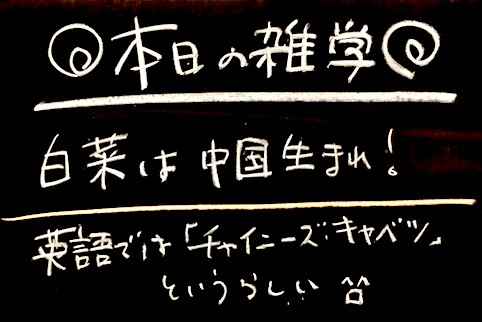 本日の雑学
白菜は中国生まれ!
英語では「チャイニーズ・キャベツ」
というらしい